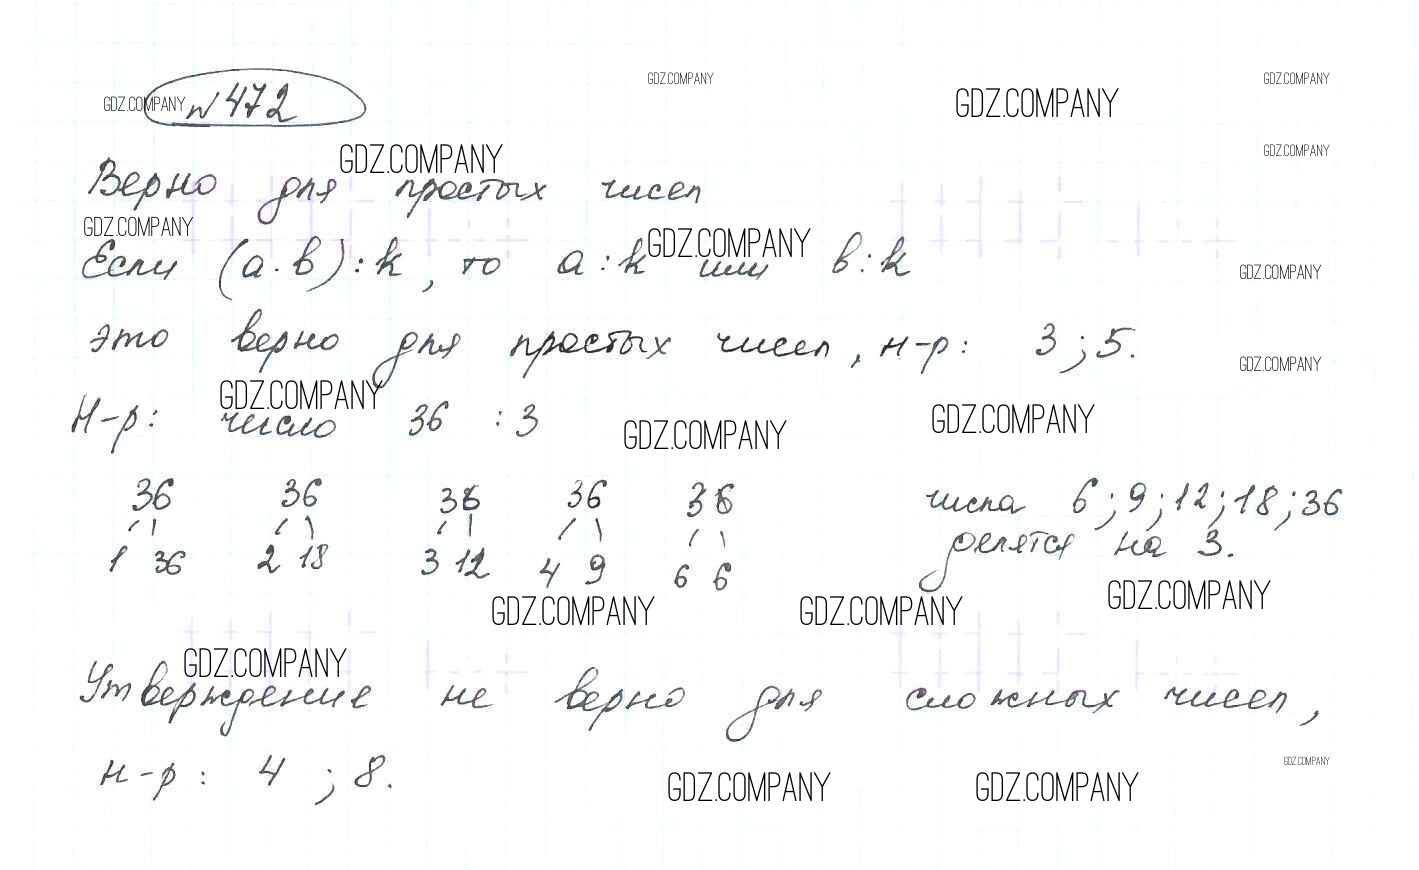 № 472
GDZ.COMPANY
GDZ.COMPANY
GDZ.COMPANY
GDZ.COMPANY
GDZ.COMPANY
GDZ.COMPANY
Верно для простых чисел
GDZ.COMPANY
GDZ.COMPANY
Если (а·в):k, то а:k или в:k
GDZ.COMPANY
это верно для простых чисел, н-р: 3; 5.
GDZ.COMPANY
GDZ.COMPANY
Н-р: число 36 :3
GDZ.COMPANY
GDZ.COMPANY
36 36 36 36 36
1 36 2 18 3 12 4 9 6 6
числа 6; 9; 12; 18; 36
делятся на 3.
GDZ.COMPANY
GDZ.COMPANY
GDZ.COMPANY
GDZ.COMPANY
Утверждение не верно для сложных чисел,
н-р: 4 ; 8.
GDZ.COMPANY
GDZ.COMPANY
GDZ.COMPANY